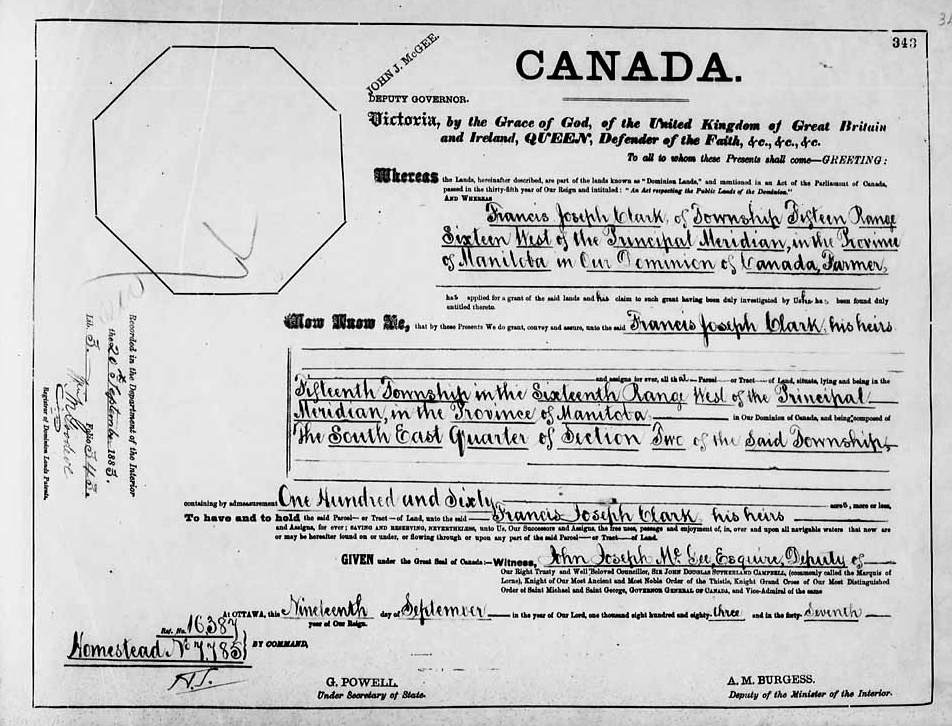 343
JOHN J. McGEE.
DEPUTY GOVERNOR.
CANADA.
Victoria, by the Grace of God, of the United Kingdom of Great Britain
and Ireland, QUEEN, Defender of the Faith, &c., &c., &c.
To all to whom these Presents shall come—GREETING:
Whereas the Lands, hereinafter described, are part of the lands known as "Dominion Lands," and mentioned in an Act of the Parliament of Canada,
passed in the thirty-fifth year of Our Reign and intituled: "An Act respecting the Public Lands of the Dominion."
AND WHEREAS
Francis Joseph Clark, of Township Fifteen Range
Sixteen West of the Principal Meridian, in the Province
of Manitoba in Our Dominion of Canada, Farmer,
has applied for a grant of the said lands and his claim to such grant having been duly investigated by Us he has been found duly
entitled thereto.
Now Know Ye, that by these Presents We do grant, convey and assure, unto the said Francis Joseph Clark, his heirs
and assigns for ever, all that Parcel or Tract of Land, situate, lying and being in the
Fifteenth Township in the Sixteenth Range West of the Principal
Meridian, in the Province of Manitoba in Our Dominion of Canada, and being composed of
The South East Quarter of Section Two of the said Township,
containing by admeasurement One Hundred and Sixty acres, more or less,
To have and to hold the said Parcel or Tract of Land, unto the said Francis Joseph Clark, his heirs
and Assigns, for ever; SAVING AND RESERVING, NEVERTHELESS, unto Us, Our Successors and Assigns, the free uses, passage and enjoyment of, in, over and upon all navigable waters that now are
or may be hereafter found on or under, or flowing through or upon any part of the said Parcel or Tract of Land.
GIVEN under the Great Seal of Canada:—Witness, John Joseph McGee, Esquire, Deputy of
Our Right Trusty and Well Beloved Councillor, SIR JOHN DOUGLAS SUTHERLAND CAMPBELL, (commonly called the Marquis of
Lorne), Knight of Our Most Ancient and Most Noble Order of the Thistle, Knight Grand Cross of Our Most Distinguished
Order of Saint Michael and Saint George, GOVERNOR GENERAL OF CANADA, and Vice-Admiral of the same
At OTTAWA, this Nineteenth day of September in the year of Our Lord, one thousand eight hundred and eighty-three and in the forty-seventh
year of Our Reign.
Ref. No. 16387
Homestead No 7785
BY COMMAND,
G. POWELL.
Under Secretary of State.
A. M. BURGESS.
Deputy of the Minister of the Interior.
Recorded in the Department of the Interior
the 20th September 1883.
Lib. 5. Folio 343.
Registrar of Dominion Lands Patents.